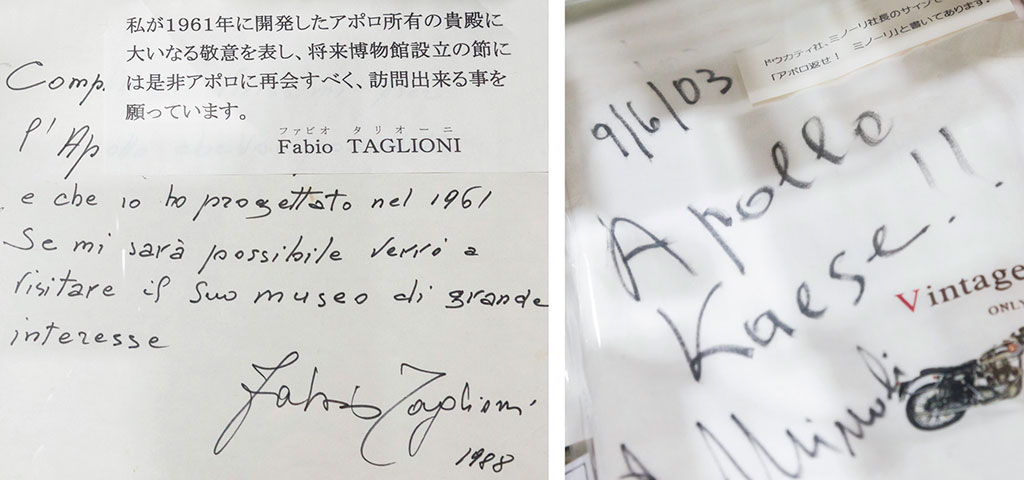 私が1961年に開発したアポロ所有の貴殿に
大いなる敬意を表し、将来博物館設立の節に
は是非アポロに再会すべく、訪問出来る事を
願っています。
ファビオ タリオーニ
Fabio TAGLIONI
Comp.
l'Ap
e che io ho progettato nel 1961
Se mi sarà possibile verrò a
visitare il suo museo di grande
interesse
Fabio Taglioni
1988
ドゥカティ社、ミノーリ社長のサインで
「アポロ返せ! ミノーリ」と書いてあります。
9/6/03
Apollo
Kaese!!
Vintage
ONLY
Minoli